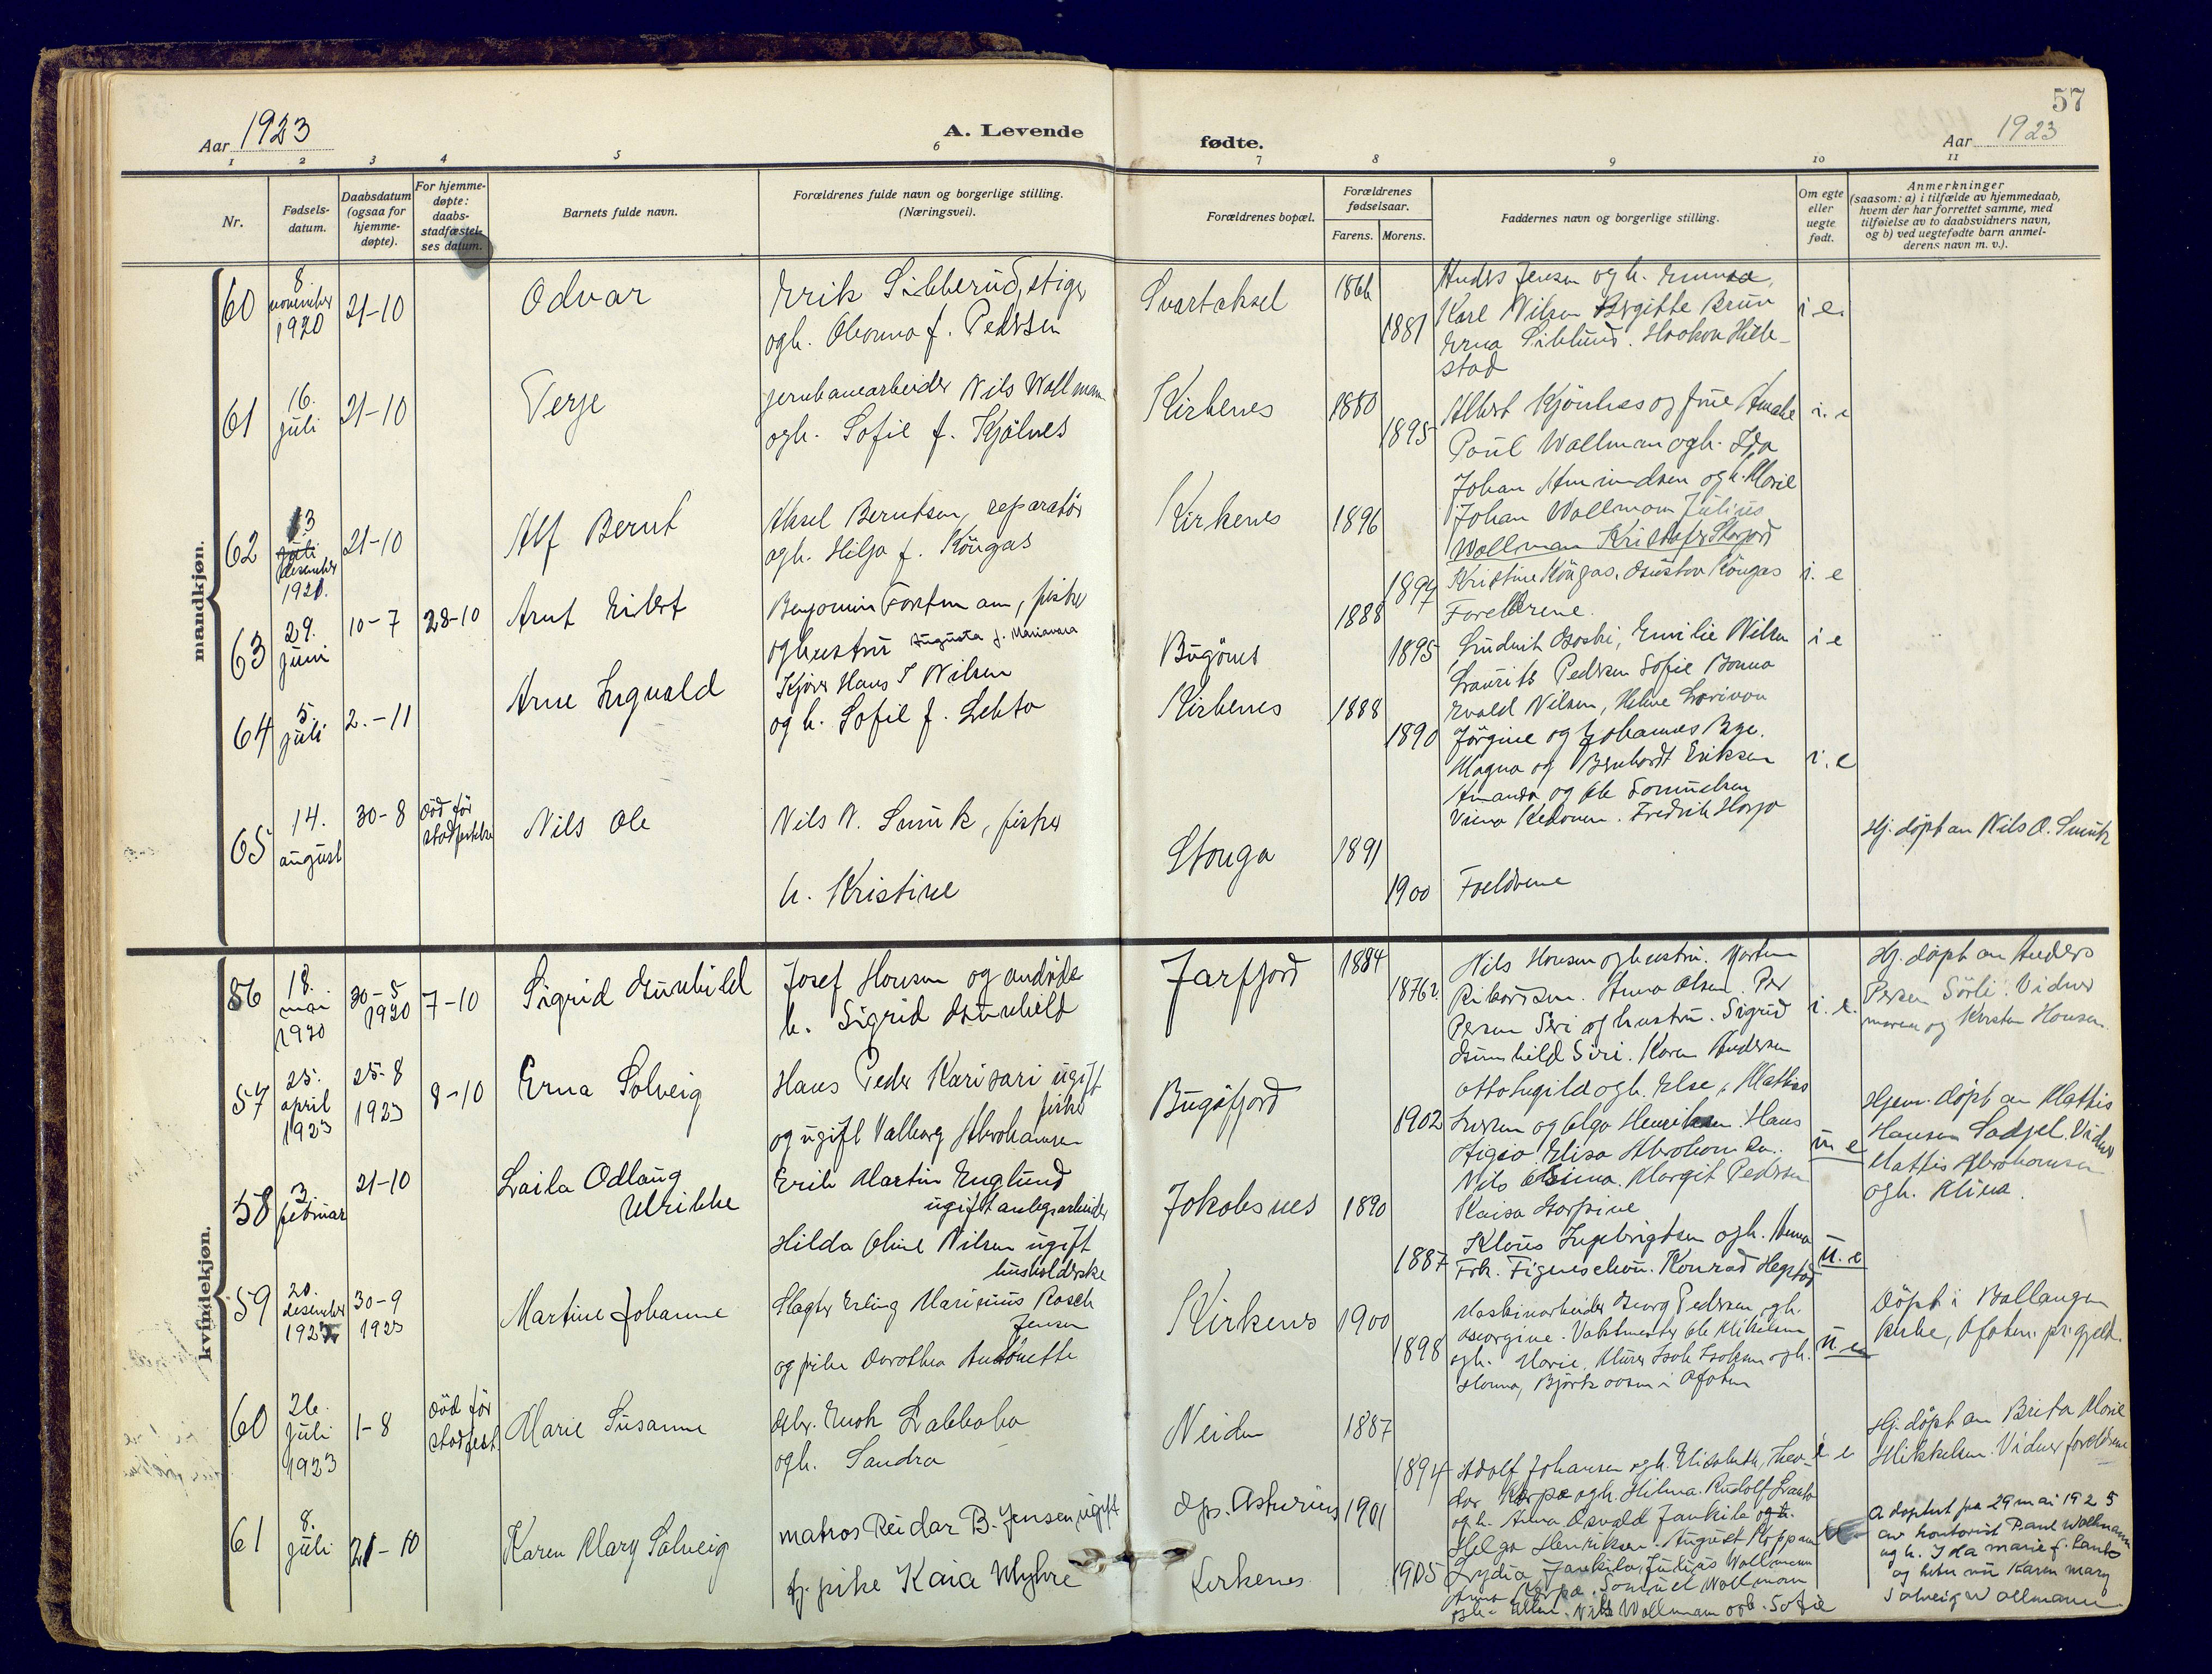 57
Aar 1923
A. Levende
fødte.
Aar 1923
1 2 3 4 5 6 7 8 9 10 11
Nr.
Fødsels-
datum.
Daabsdatum
(ogsaa for
hjemme-
døpte).
For hjemme-
døpte:
daabs-
stadfæstel-
ses datum.
Barnets fulde navn.
Forældrenes fulde navn og borgerlige stilling.
(Næringsvei).
Forældrenes bopæl.
Forældrenes
fødselsaar.
Farens. Morens.
Faddernes navn og borgerlige stilling.
Om egte
eller
uegte
født.
Anmerkninger
(saasom: a) i tilfælde av hjemmedaab,
hvem der har forrettet samme, med
tilføielse av to daabsvidners navn,
og b) ved uegtefødte barn anmel-
derens navn m. v.).
mandkjøn.
60
8.
november
1920
21-10
Odvar
Erik Sibberud, stiger
ogh. f. Pedersen
Svartaksel
1866
1881
Anders Jensen og h. Emma,
Karl Nilsen Birgitte Brun
Erna Siblund. Haakon Hille-
stad
i e.
61
16.
juli
21-10
Terje
jernbanearbeider Nils Wollmann
ogh. Sofie f. Kjølnes
Kirkenes
1880
1895
Albert Kjönhas og frue
Paul Wollman ogh. Ida
Johan Amundsen ogh. Marie
Johan Wollmann Julius
Wollman Kristofer Storjord
i. e
62
13
juli
desember
1921.
21-10
Alf Bernt
Aksel Berntsen, reparatör
ogh. Hilja f. Köngas
Kirkenes
1896
1897
Kristine Köngas. Gustav Köngas
Foreldrene.
i. e
63
29.
juni
10-7
28-10
Arnt Eilert
Benjamin Fortman, fisker
og hustru Augusta f. Mariavara
Bugönes
1888
1895
Ludvik, Emilie Nilsen
Laurits Pedersen Sofie
i e
64
5
juli
2.-11
Arne Ingvald
Kjörer Hans J Nilsen
og h. Sofie f. Lehto
Kirkenes
1888
1890
Evald Nilsen, Helene
Jörgine og Johannes Bye.
Magna og Bernhardt Eriksen
Amanda og Ole Samuelsen
Kedonen. Fredrik
i. e
65
14.
august
30-8
död för
stadfestelse
Nils Ole
Nils N. Smuk, fisker
h. Kristine
Stonga
1891
1900
Foeldrene
Hj. döpt av Nils O. Smuk
kvindekjøn.
56
18.
mai
1920
30-5
1920
7-10
Sigrid Gunhild
Josef Hansen og avdöde
h. Sigrid Gunhild
Jarfjord
1884
1876
Nils Hansen og hustru. Morten
Rikardsen. Anna Olsen. Per
Persen Siri og hustru. Sigrid
Gunhild Siri. Karen Andersen
i. e.
Hj. döpt av Anders
Persen Sörli. Vidner
moren og Kirsten Hansen
57
25.
april
1923
25-8
1923
8-10
Erna Solveig
Hans Peder Karisari ugift
fisker
og ugift Valborg Abrahamsen
Bugöfjord
1902
Otto Ingilæ ogh. Else, Mattias
og Olga Henriksen. Hans
Elisa Abrahamsen.
Nils. Margit Pedersen
Kaisa
u e
Hjem. döpt av Mattis
Hansen Sadjel. Vidner
Mattis Abrahamsen
ogh. Alina.
58
3
februar
21-10
Laila Odlaug
Ulrikke
Erik Martin Englund
ugift anlegsarbeider
Hilda Oline Nilsen ugift
husholderske
Jakobsnes
1890
1887
Klaus Ingebrigtsen ogh. Anna
Frk. Figenschou. Konrad Hegstad
u. e
59
20.
desember
192
30-9
1923
Martine Johanne
Slagter Erling Marinius Rasch
Jensen
og pike Dorothea Antonette
Kirkenes
1900
1898
Maskinarbeider Georg Pedersen ogh.
Georgine. Vaktmester Ole Mikkelsen
ogh. Marie. Murer Isak Isaksen ogh.
Hanna, Björkaasen i Ofoten
u. e
Döpt i Ballangen
kirke, Ofoten pr.gjeld.
60
26.
juli
1923
1-8
död för
stadfest
Marie Susanne
Arb. Enok Labbaho
ogh. Sandra
Neiden
1887
1894
Adolf Johansen ogh. Elisabeth, Theo-
dor Korpæ ogh. Hilma. Rudolf
ogh. Anna Osvald Jankila ogh.
Helga Henriksen. August
i e
Hj. döpt av Brita Marie
Mikkelsen. Vidner foreldrene
61
8.
juli
21-10
Karen Mary Solveig
matros Reidar B. Jensen, ugift
pike Kaia Myhre
dps. Asturius
Kirkenes
1901
1905
Lydia Jankila, Julius Wollmann
Anna Korpæ. Samuel Wollmann
ogh. Ellen. Nils Wollmann ogh. Sofie
Adoptert fra 29 mai 1925
av kontorist Paul Wollmann
og h. Ida marie f. Lanto
og heter nu Karen mary
Solveig Wollmann